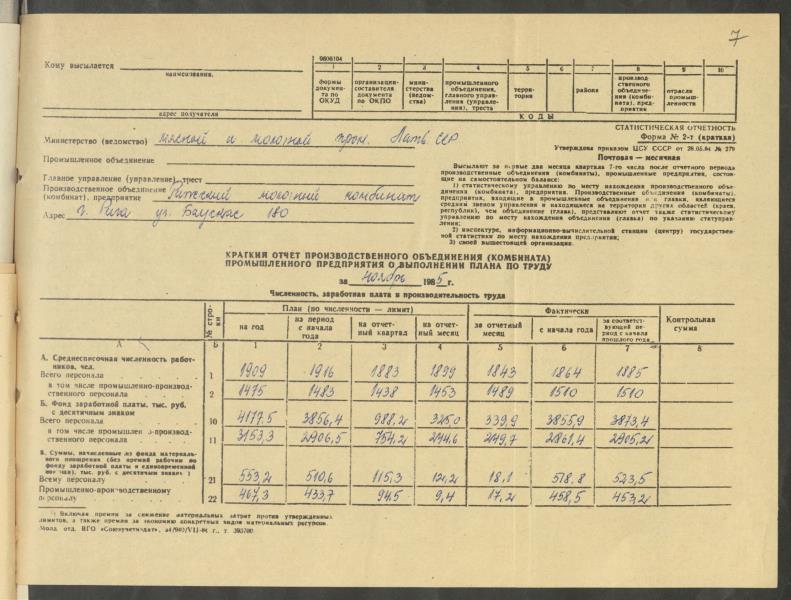 7
Кому высылается
наименование,
адрес получателя
0606104
1 2 3 4 5 6 7 8 9 10
формы документа по ОКУД
организации-составителя документа по ОКПО
министерства (ведомства)
промышленного объединения, главного управления (управления), треста
территории
района
производственного объединения (комбината), предприятия
отрасли промышленности
КОДЫ
СТАТИСТИЧЕСКАЯ ОТЧЕТНОСТЬ
Форма № 2-т (краткая)
Утверждена приказом ЦСУ СССР от 28.05.84 № 279
Почтовая — месячная
Министерство (ведомство) мясной и молочной пром. Латв ССР
Промышленное объединение
Главное управление (управление), трест
Производственное объединение
(комбинат), предприятие Рижский молочный комбинат
Адрес г. Рига ул. Баускас 180
Высылают за первые два месяца квартала 7-го числа после отчетного периода
производственные объединения (комбинаты), промышленные предприятия, состоящие на самостоятельном балансе:
1) статистическому управлению по месту нахождения производственного объединения (комбината), предприятия. Производственные объединения (комбинаты),
предприятия, входящие в промышленные объединения и в главки, являющиеся
средним звеном управления и находящиеся на территории других областей (краев,
республик), чем объединение (главк), представляют отчет также статистическому
управлению по месту нахождения объединения (главка) по указанию статуправления;
2) инспектуре, информационно-вычислительной станции (центру) государственной статистики по месту нахождения предприятия;
3) своей вышестоящей организации.
КРАТКИЙ ОТЧЕТ ПРОИЗВОДСТВЕННОГО ОБЪЕДИНЕНИЯ (КОМБИНАТА)
ПРОМЫШЛЕННОГО ПРЕДПРИЯТИЯ О ВЫПОЛНЕНИИ ПЛАНА ПО ТРУДУ
за ноябрь 1985 г.
Численность, заработная плата и производительность труда
№ строки
План (по численности — лимит)
Фактически
Контрольная сумма
на год
на период с начала года
на отчетный квартал
на отчетный месяц
за отчетный месяц
с начала года
за соответствующий период с начала прошлого года
А Б 1 2 3 4 5 6 7 8
А. Среднесписочная численность работников, чел.
Всего персонала 1 1909 1916 1883 1899 1843 1864 1885
в том числе промышленно-производственного персонала 2 1475 1483 1438 1453 1489 1510 1510
Б. Фонд заработной платы, тыс. руб.
с десятичным знаком
Всего персонала 10 4177,5 3856,4 988,2 325,0 339,9 3855,9 3873,4
в том числе промышленно-производственного персонала 11 3153,3 2906,5 754,2 244,6 249,7 2861,4 2905,2
В. Суммы, начисленные из фонда материального поощрения (без премий рабочим по
фонду заработной платы и единовременной
помощи), тыс. руб. с десятичным знаком ¹)
Всему персоналу 21 553,2 510,6 115,3 12,2 18,1 518,8 523,5
Промышленно-производственному
персоналу 22 467,3 433,7 94,5 9,4 17,2 458,5 453,2
¹) Включая премии за снижение материальных затрат против утвержденных
лимитов, а также премии за экономию конкретных видов материальных ресурсов.
Молд. отд. ВГО «Союзучетиздат»